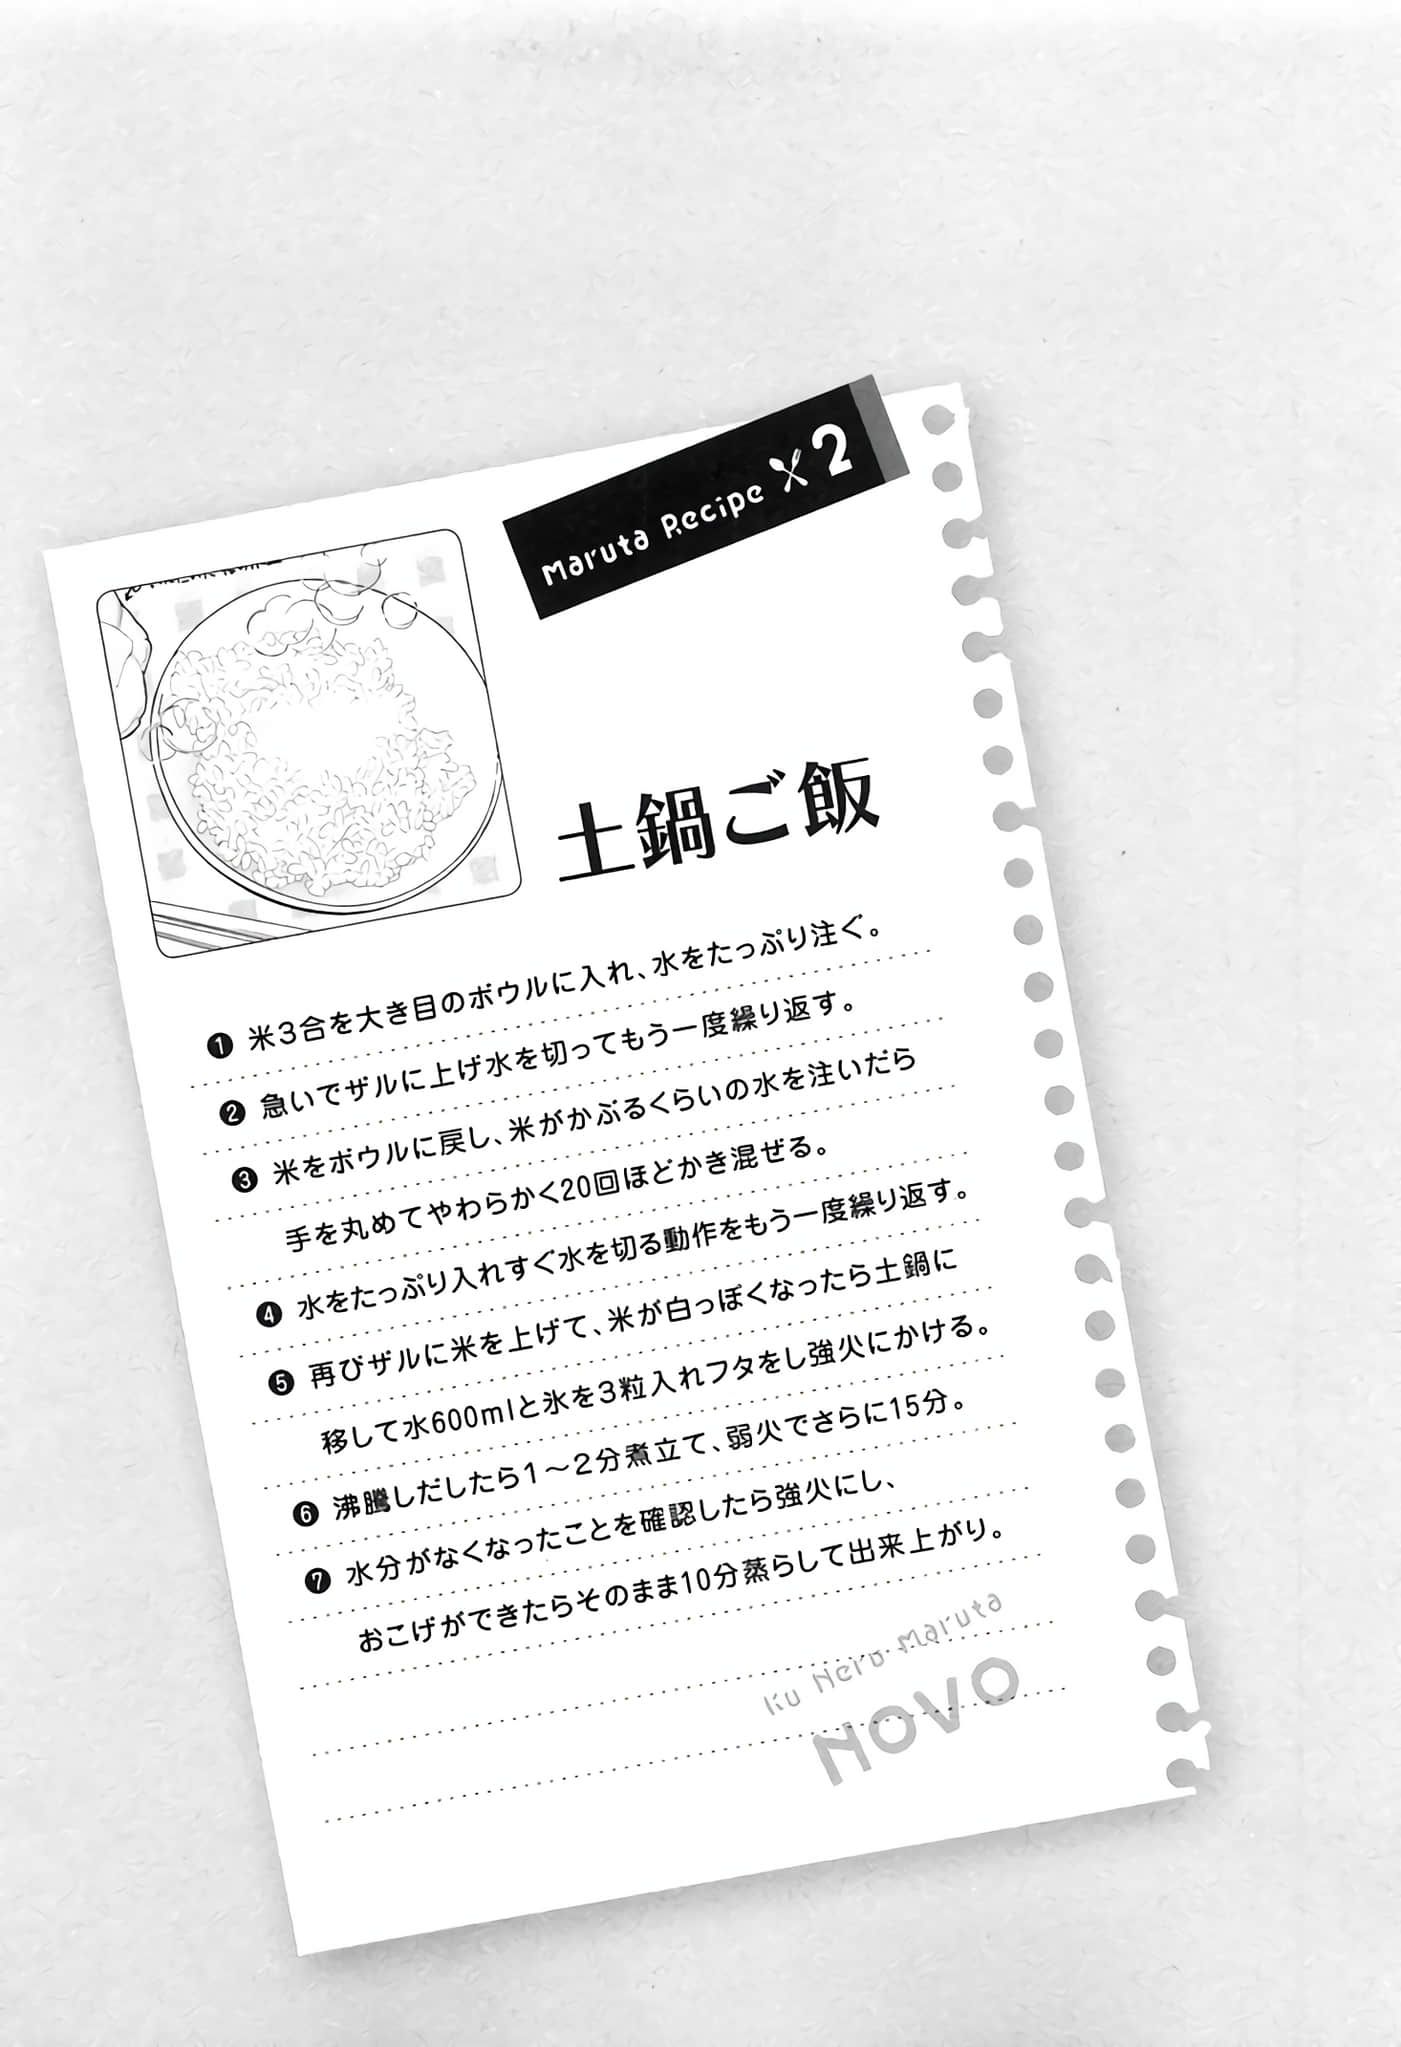 Maruta Recipe 2
土鍋ご飯
❶ 米3合を大き目のボウルに入れ、水をたっぷり注ぐ。
❷ 急いでザルに上げ水を切ってもう一度繰り返す。
❸ 米をボウルに戻し、米がかぶるくらいの水を注いだら
手を丸めてやわらかく20回ほどかき混ぜる。
❹ 水をたっぷり入れすぐ水を切る動作をもう一度繰り返す。
❺ 再びザルに米を上げて、米が白っぽくなったら土鍋に
移して水600mlと氷を3粒入れフタをし強火にかける。
❻ 沸騰しだしたら1～2分煮立て、弱火でさらに15分。
❼ 水分がなくなったことを確認したら強火にし、
おこげができたらそのまま10分蒸らして出来上がり。
Iku Hero Maruta
NOVO